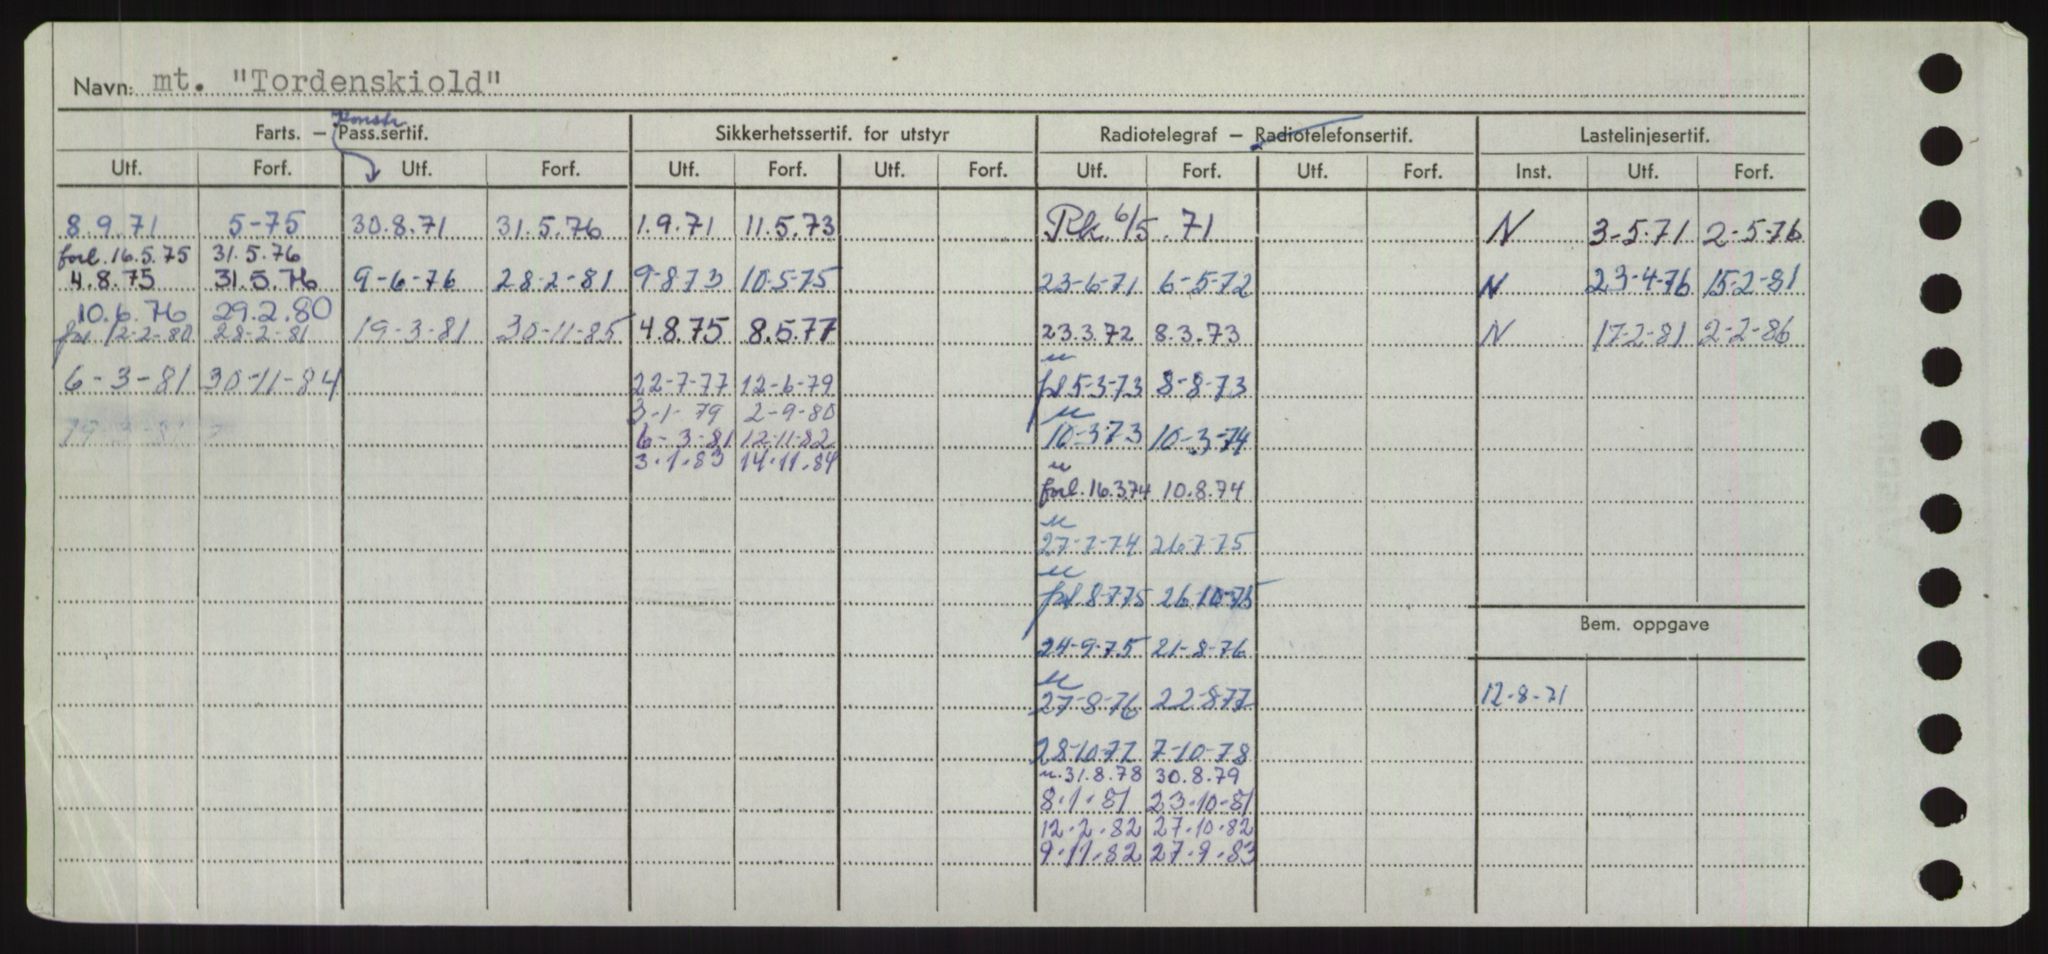 Navn: mt. "Tordenskiold"
Farts. – Pass.sertif. Konstr Sikkerhetssertif. for utstyr Radiotelegraf – Radiotelefonsertif. Lastelinjesertif.
Utf. Forf. Utf. Forf. Utf. Forf. Utf. Forf. Utf. Forf. Utf. Forf. Inst. Utf. Forf.
8.9.71 5-75 30.8.71 31.5.76 1.9.71 11.5.73 Rk. 6/5.71 N 3-5.71 2-5-76
forl. 16.5.75 31.5.76
4.8.75 31.5.76 9-6-76 28-2-81 9-8 73 10-5-75 23-6-71 6-5-72 N 23-4-76 15-2-81
10.6.76 29.2.80
forl 12-2-80 28-2-81 19-3-81 30-11-85 4.8.75 8.5.77 23.3.72 8.3.73 N 17-2-81 2-2-86
u
6-3-81 30-11-84 22-7-77 12-6-79 fol 5-3-73 8-8-73
3-1-79 2-9-80 u
6-3-81 12-11-82 10-3-73 10-3-74
3.1.83 14.11.84 u
forl. 16.3.74 10.8.74
u
27-7-74 26-7-75
u
fol 8-7-75 26-10-75
Bem. oppgave
24-9-75 21-8-76
u
27-8-76 22-8-77 12-8-71
28-10-77 7-10-78
u. 31.8.78 30.8.79
8.1.81 23-10-81
12.2.82 27.10.82
9.11.82 27.9.83